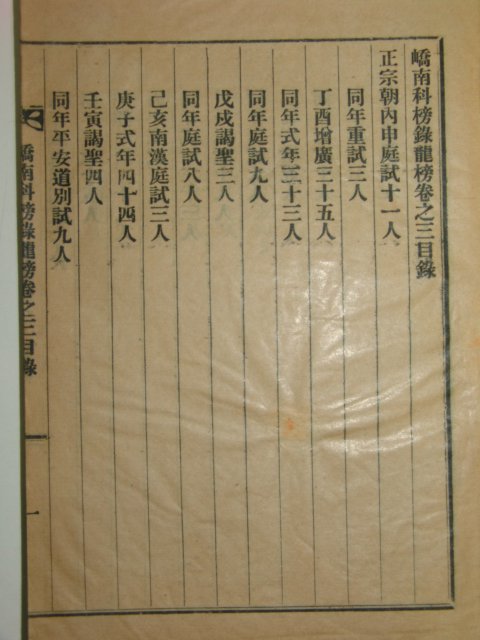 嶠南科榜錄龍榜卷之三目錄
正宗朝內申庭試十一人
同年重試三人
丁酉增廣三十五人
同年式年三十三人
同年庭試九人
戊戌謁聖三人
同年庭試八人
己亥南漢庭試三人
庚子式年四十四人
壬寅謁聖四人
同年平安道別試九人
嶠南科榜錄龍榜卷之三目錄
一